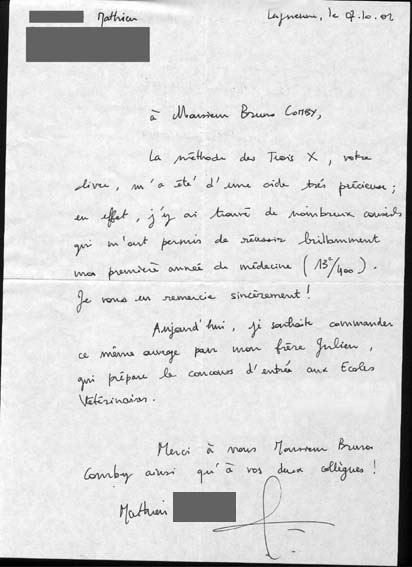 Mathieu
le 07.10.02
à Monsieur Bruno COMBY,
La méthode des Trois X, votre
livre, m'a été d'une aide très précieuse ;
en effet, j'y ai trouvé de nombreux conseils
qui m'ont permis de réussir brillamment
ma première année de médecine (13e/400).
Je vous en remercie sincèrement !
Aujourd'hui, je souhaite commander
ce même ouvrage pour mon frère Julien,
qui prépare le concours d'entrée aux Ecoles
Vétérinaires.
Merci à vous Monsieur Bruno
Comby ainsi qu'à vos deux collègues !
Mathieu